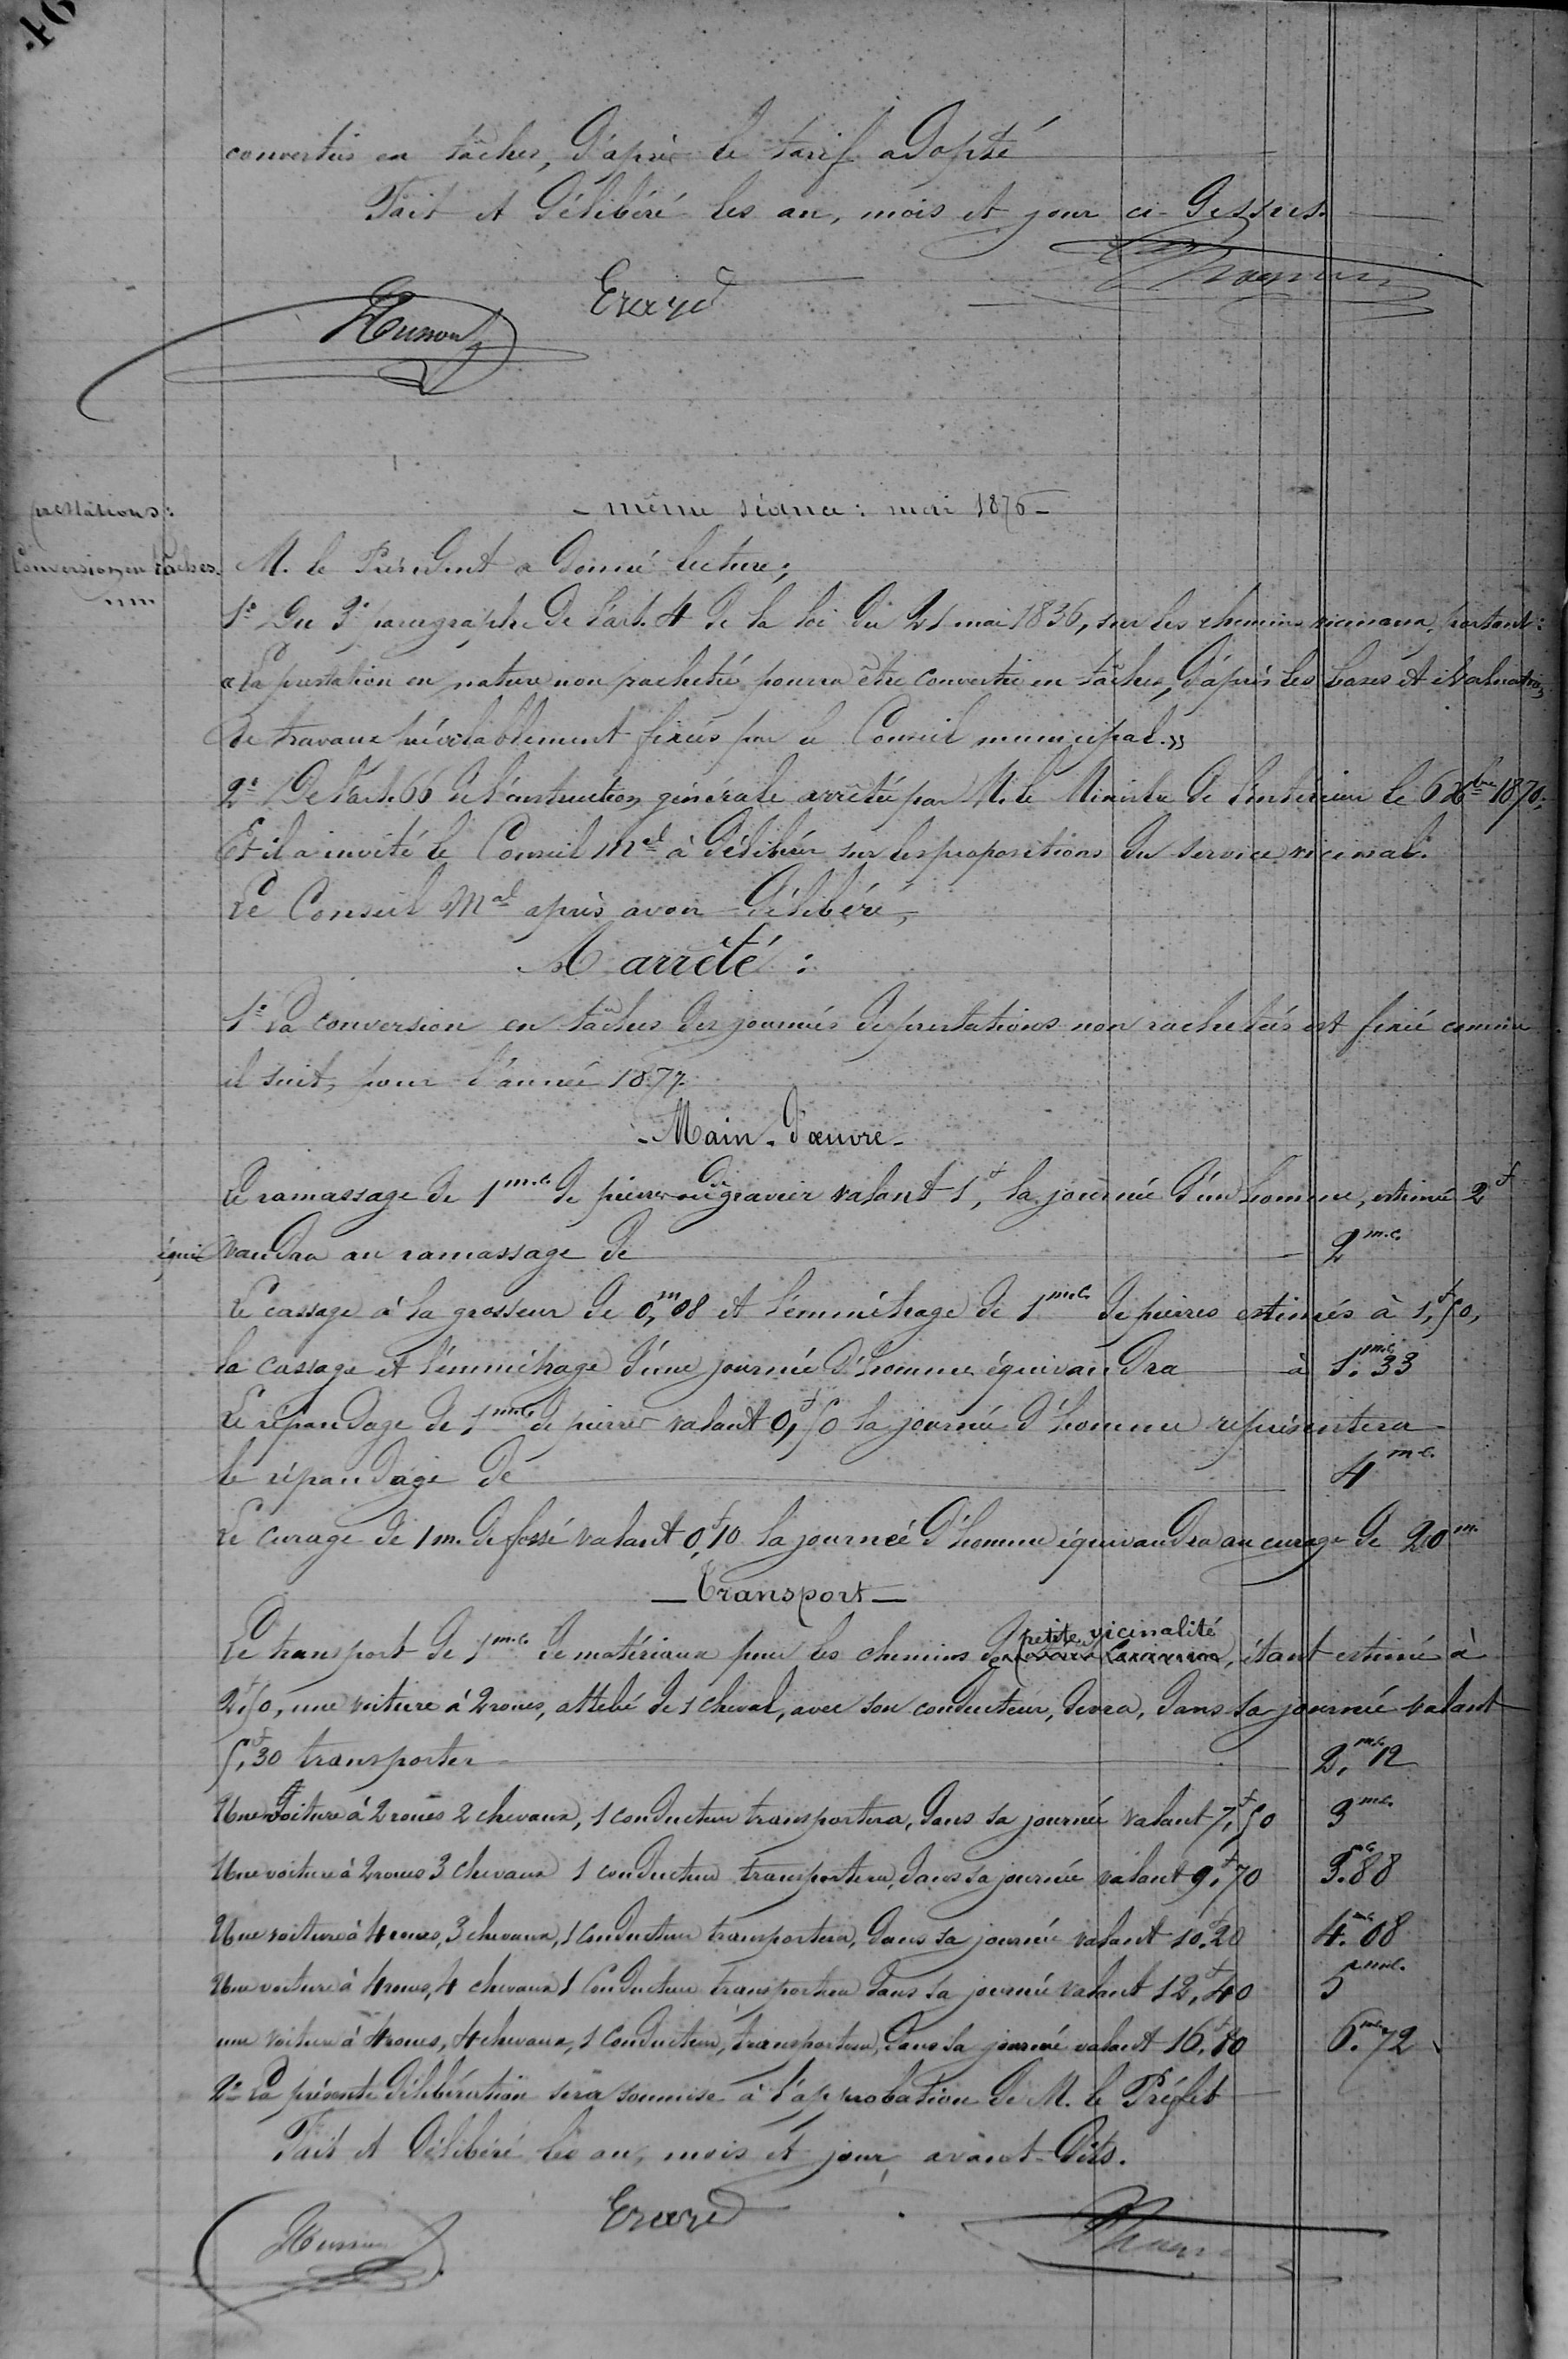 46
convertis en tâches, d'après le tarif adopté
Fait et délibéré les an, mois et jour ci-dessus.
Erard
Husson
prestations:
Conversion en tâches.
- même séance: mai 1876 -
M. le Président a donné lecture;
1° Du 3e paragraphe de l'art. 4 de la loi du 21 mai 1836, sur les chemins vicinaux, portant:
"La prestation en nature non rachetée pourra être convertie en tâches, d'après les bases et évaluations
de travaux préalablement fixés par le Conseil municipal."
2° De l'art. 66 de l'instruction générale arrêtée par M. le Ministre de l'intérieur le 6 Xbre 1870;
Et il a invité le Conseil Mal à délibérer sur les propositions du service vicinal.
Le Conseil Mal après avoir délibéré,
A arrêté:
1° La conversion en tâches des journées de prestations non rachetées est fixée comme
il suit, pour l'année 1877.
- Main-d'œuvre -
Le ramassage de 1 m.c. de pierre ou de gravier valant 1f, la journée d'un homme, estimée 2f
équivaudra au ramassage de 2 m.c.
Le cassage à la grosseur de 0,m08 et l'emmétrage de 1 m.c. de pierres estimés à 1,f50,
la cassage et l'emmétrage d'une journée d'homme équivaudra à 1.mc33
Le répandage de 1 m.c. de pierres valant 0,f50 la journée d'homme représentera
le répandage de 4 m.c.
Le curage de 1 m. de fossé valant 0,f10 la journée d'homme équivaudra au curage de 20 m.
- Transport -
Le transport de 1 m.c. de matériaux pour les chemins de petite vicinalité, étant estimé à
2,f50, une voiture à 2 roues, attelé de 1 cheval, avec son conducteur, devra, dans sa journée valant
5,f30 transporter 2,mc12
Une voiture à 2 roues 2 chevaux, 1 conducteur transportera, dans sa journée valant 7,f50 3 m.c.
Une voiture à 2 roues 3 chevaux 1 conducteur transportera, dans sa journée valant 9,f70 3.mc88
Une voiture à 4 roues, 3 chevaux, 1 conducteur transportera, dans sa journée valant 10,f20 4.mc08
Une voiture à 4 roues, 4 chevaux 1 Conducteur transportera dans sa journée valant 12,f40 5 m.c.
une voiture à 4 roues, 4 chevaux, 1 conducteur, transportera, dans sa journée valant 16,f80 6.mc72
2° La présente délibération sera soumise à l'approbation de M. le Préfet
Fait et délibéré les an, mois et jour, avant-dits.
Erard
Husson